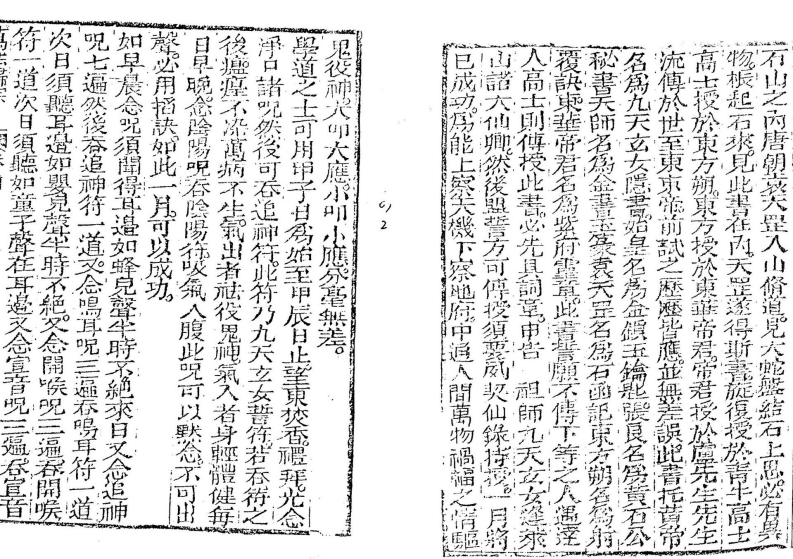 石山之內唐朝袁天罡入山脩道見大蛇盤結石上思必有異
物振起石來見此書在內天罡遂得斯書旋復授於青牛高士
高士授於東方朔東方授於東華帝君帝君授於盧先生先生
流傳於世至東京帝前試之歷歷皆應並無差誤此書托黃帝
名爲九天玄女隱書始皇名爲金鎖玉鑰匙張良名爲黃石公
秘書天師名爲金書玉篆袁天罡名爲石函記東方朔名爲射
覆訣東華帝君名爲紫府靈章此書誓願不傳下等之人遇達
人高士則傳授此書必先具詞章申告 祖師九天玄女蓬萊
山諸大仙卿然後盟誓方可傳授須靈威契仙錄持授一月將
已成功爲能上察天機下察地府中追人間萬物禍福之情驅
鬼役神大叩大應小叩小應分毫無差
學道之士可用甲子日爲始至甲辰日止望東焚香禮拜先念
淨口諸呪然後可吞追神符此符乃九天玄女誓符若吞符之
後瘟㾮不染萬病不生氣出者袪役鬼神氣入者身輕體健每
日早晚念陰陽呪吞陰陽符吸氣入腹此呪可以默念不可出
聲必用掐訣如此一月可以成功
如早晨念呪須聞得耳邊如蜂兒聲半時不絕來日又念追神
呪七遍然後吞追神符一道又念鳴耳呪三遍吞鳴耳符一道
次日須聽耳邊如嬰兒聲半時不絕又念開喉呪三遍吞開喉
符一道次日須聽如童子聲在耳邊又念宣音呪三遍吞宣音